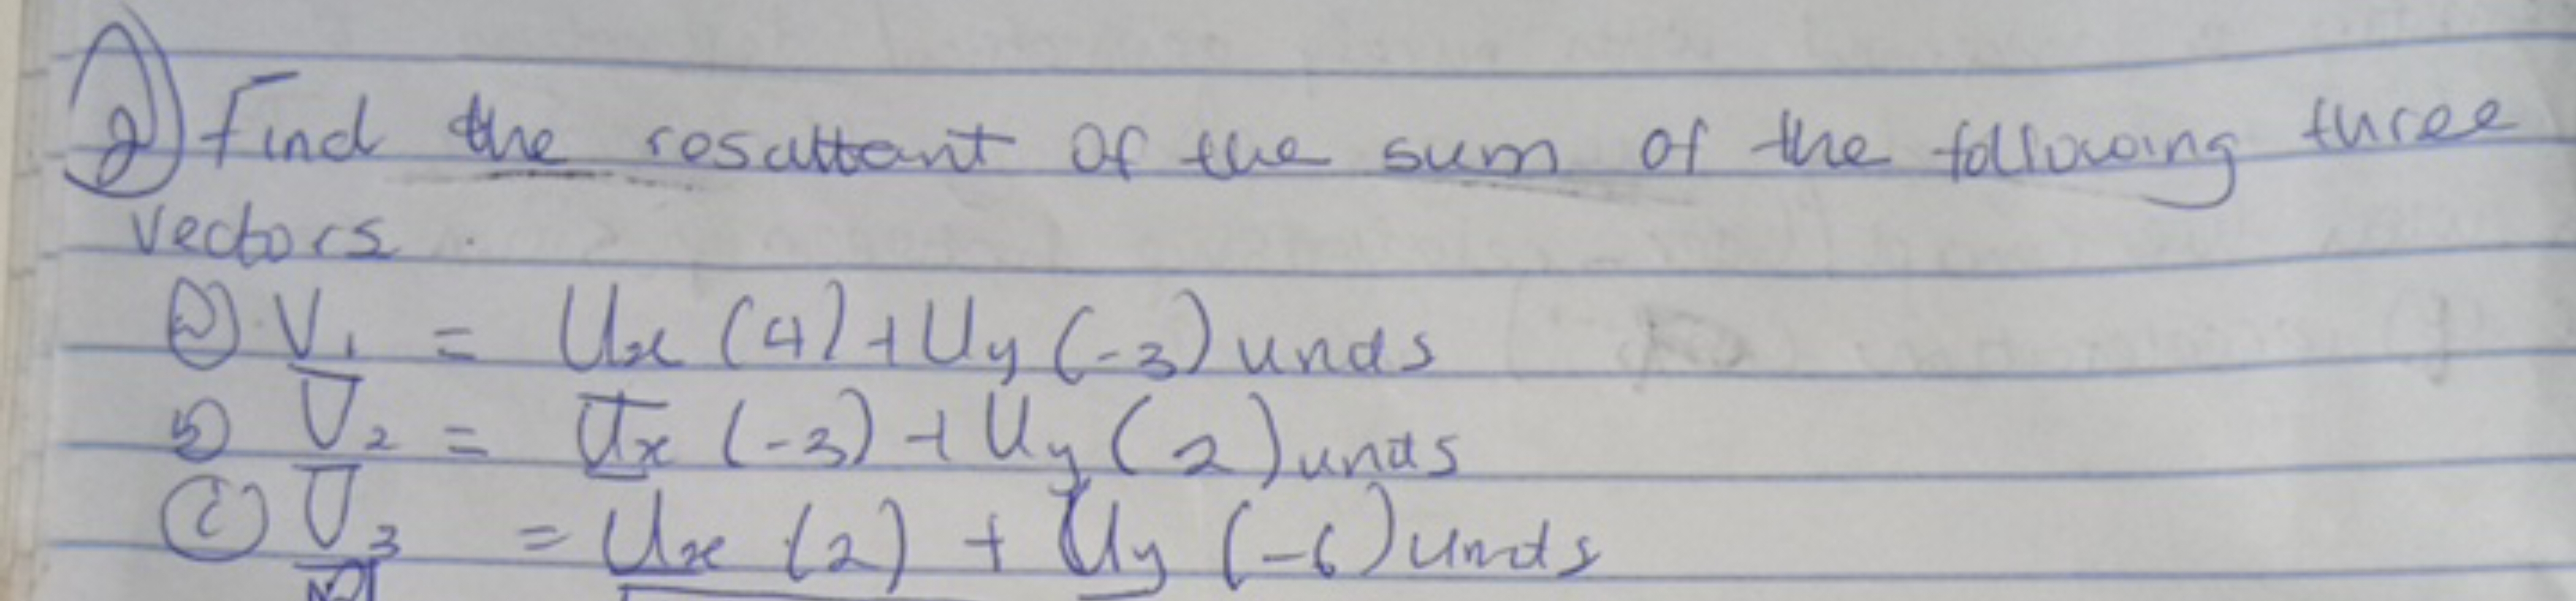 2) Find the resultant of the sum of the following three
vectors.
a) V₁ = Ux (4) + Uy (-3) units
b) V₂ = Ux (-3) + Uy (2) units
c) V₃ = Ux (2) + Uy (-6) units